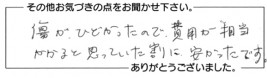 その他お気づきの点をお聞かせ下さい。
傷が、ひどかったので、費用が相当
かかると思っていた割に、安かったです。
ありがとうございました。